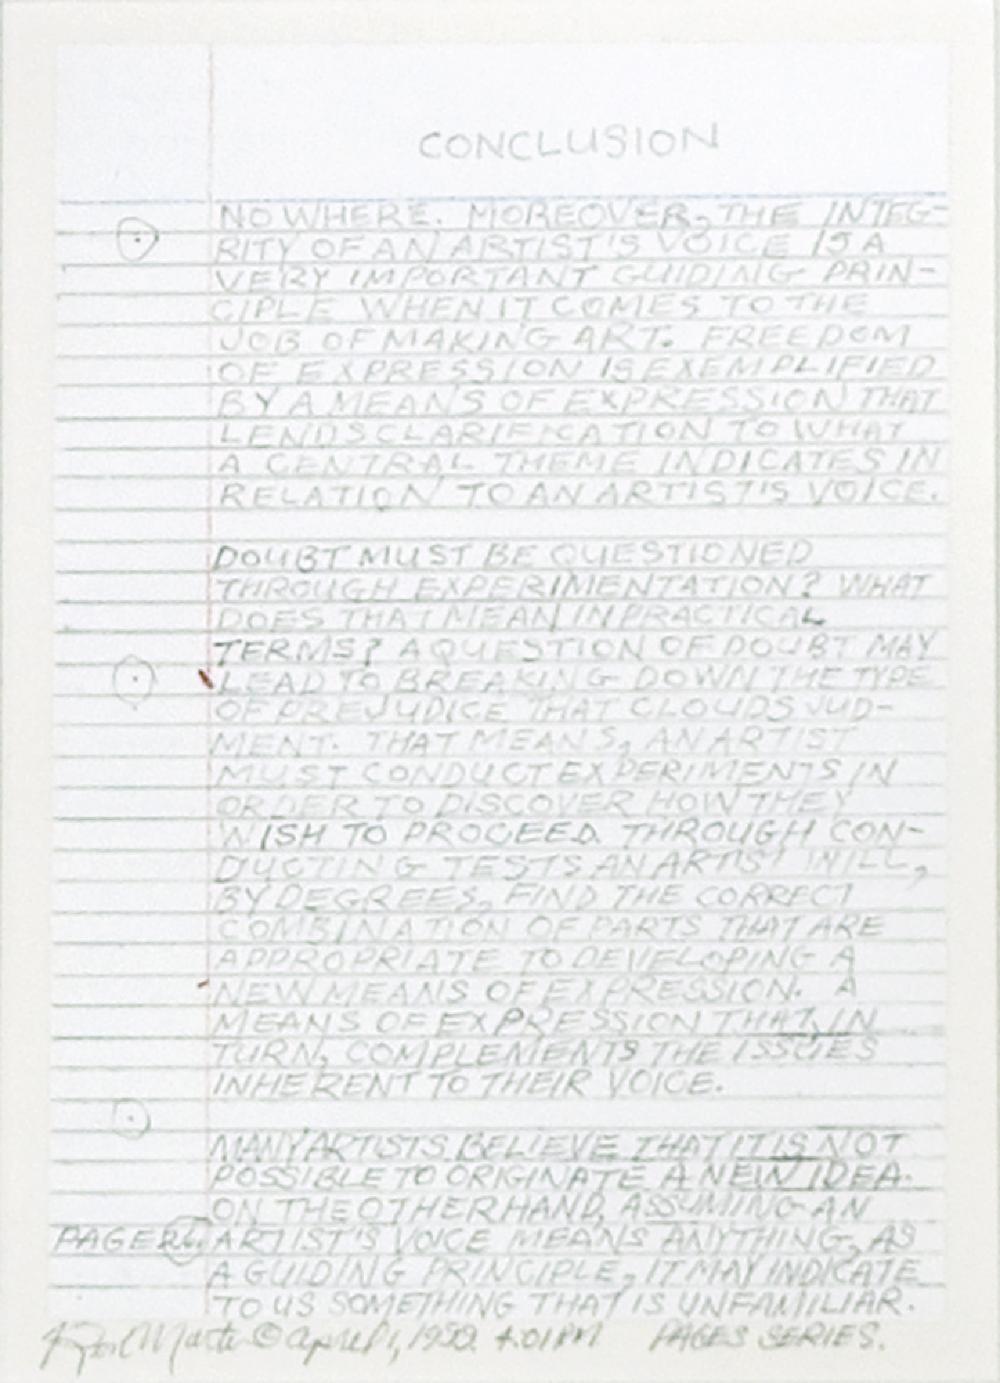 CONCLUSION
NOWHERE. MOREOVER, THE INTEG-
RITY OF AN ARTIST'S VOICE IS A
VERY IMPORTANT GUIDING PRIN-
CIPLE WHEN IT COMES TO THE
JOB OF MAKING ART. FREEDOM
OF EXPRESSION IS EXEMPLIFIED
BY A MEANS OF EXPRESSION THAT
LENDS CLARIFICATION TO WHAT
A CENTRAL THEME INDICATES IN
RELATION TO AN ARTIST'S VOICE.
DOUBT MUST BE QUESTIONED
THROUGH EXPERIMENTATION? WHAT
DOES THAT MEAN IN PRACTICAL
TERMS? A QUESTION OF DOUBT MAY
LEAD TO BREAKING DOWN THE TYPE
OF PREJUDICE THAT CLOUDS JUD-
MENT. THAT MEANS, AN ARTIST
MUST CONDUCT EXPERIMENTS IN
ORDER TO DISCOVER HOW THEY
WISH TO PROCEED. THROUGH CON-
DUCTING TESTS AN ARTIST WILL,
BY DEGREES, FIND THE CORRECT
COMBINATION OF PARTS THAT ARE
APPROPRIATE TO DEVELOPING A
NEW MEANS OF EXPRESSION. A
MEANS OF EXPRESSION THAT, IN
TURN, COMPLEMENTS THE ISSUES
INHERENT TO THEIR VOICE.
MANY ARTISTS BELIEVE THAT IT IS NOT
POSSIBLE TO ORIGINATE A NEW IDEA.
ON THE OTHER HAND, ASSUMING AN
PAGE ARTIST'S VOICE MEANS ANYTHING, AS
A GUIDING PRINCIPLE, IT MAY INDICATE
TO US SOMETHING THAT IS UNFAMILIAR.
© April 1, 4:01 PM PAGES SERIES.